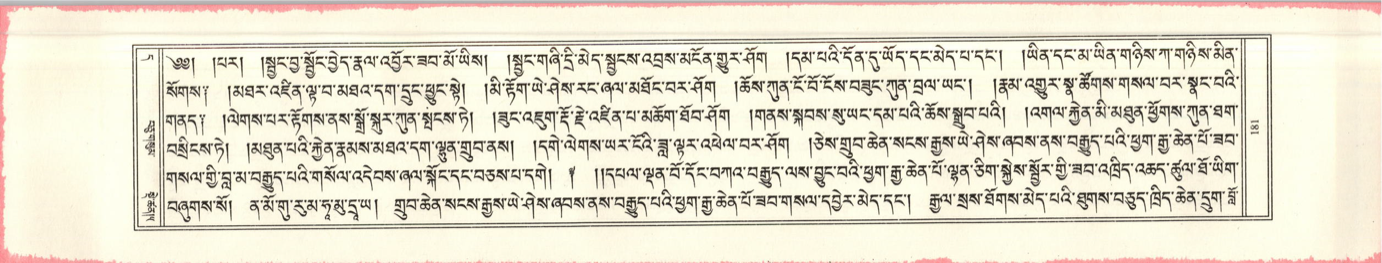 ༄༅། །པར། །སྦྱང་བྱ་སྦྱོང་བྱེད་རྣལ་འབྱོར་ཟབ་མོ་ཡིས། །སྦྱང་གཞི་དྲི་མེད་སྦྱངས་འབྲས་མངོན་གྱུར་ཤོག །དམ་པའི་དོན་དུ་ཡོད་དང་མེད་པ་དང་། །ཡིན་དང་མ་ཡིན་གཉིས་ཀ་གཉིས་མིན་
སོགས༑ །མཐར་འཛིན་ལྟ་བ་མཐའ་དག་དྲུང་ཕྱུང་སྟེ། །མི་རྟོག་ཡེ་ཤེས་རང་ཞལ་མཐོང་བར་ཤོག །ཆོས་ཀུན་ངོ་བོ་ངོས་བཟུང་ཀུན་བྲལ་ཡང་། །རྣམ་འགྱུར་སྣ་ཚོགས་གསལ་བར་སྣང་བའི་
གནད༑ །ལེགས་པར་རྟོགས་ནས་སྒྲོ་སྐུར་ཀུན་སྤངས་ཏེ། །ཟུང་འཇུག་རྡོ་རྗེ་འཛིན་པ་མཆོག་ཐོབ་ཤོག །གནས་སྐབས་སུ་ཡང་དམ་པའི་ཆོས་སྒྲུབ་པའི། །འགལ་རྐྱེན་མི་མཐུན་ཕྱོགས་ཀུན་ཐག་
བསྲིངས་ཏེ། །མཐུན་པའི་རྐྱེན་རྣམས་མཐའ་དག་ལྷུན་གྲུབ་ནས། །དགེ་ལེགས་ཡར་ངོའི་ཟླ་ལྟར་འཕེལ་བར་ཤོག །ཅེས་གྲུབ་ཆེན་སངས་རྒྱས་ཡེ་ཤེས་ཞབས་ནས་བརྒྱུད་པའི་ཕྱག་རྒྱ་ཆེན་པོ་ཟབ་
གསལ་གྱི་བླ་མ་བརྒྱུད་པའི་གསོལ་འདེབས་ཞལ་སྐོང་དང་བཅས་པ་དགེ། ༈ །།དཔལ་ལྡན་བོ་དོང་བཀའ་བརྒྱུད་ལས་བྱུང་བའི་ཕྱག་རྒྱ་ཆེན་པོ་ལྷན་ཅིག་སྐྱེས་སྦྱོར་གྱི་ཟབ་འཁྲིད་འཆད་ཚུལ་ཐོ་ཡིག་
བཞུགས་སོ། ན་མོ་གུ་རུ་མ་ཧཱ་མུ་དྲཱ་ཡ། གྲུབ་ཆེན་སངས་རྒྱས་ཡེ་ཤེས་ཞབས་ནས་བརྒྱུད་པའི་ཕྱག་རྒྱ་ཆེན་པོ་ཟབ་གསལ་དབྱེར་མེད་དང་། རྒྱལ་སྲས་ཐོགས་མེད་པའི་ཐུགས་བཅུད་ཁྲིད་ཆེན་དྲུག་བློ་
181